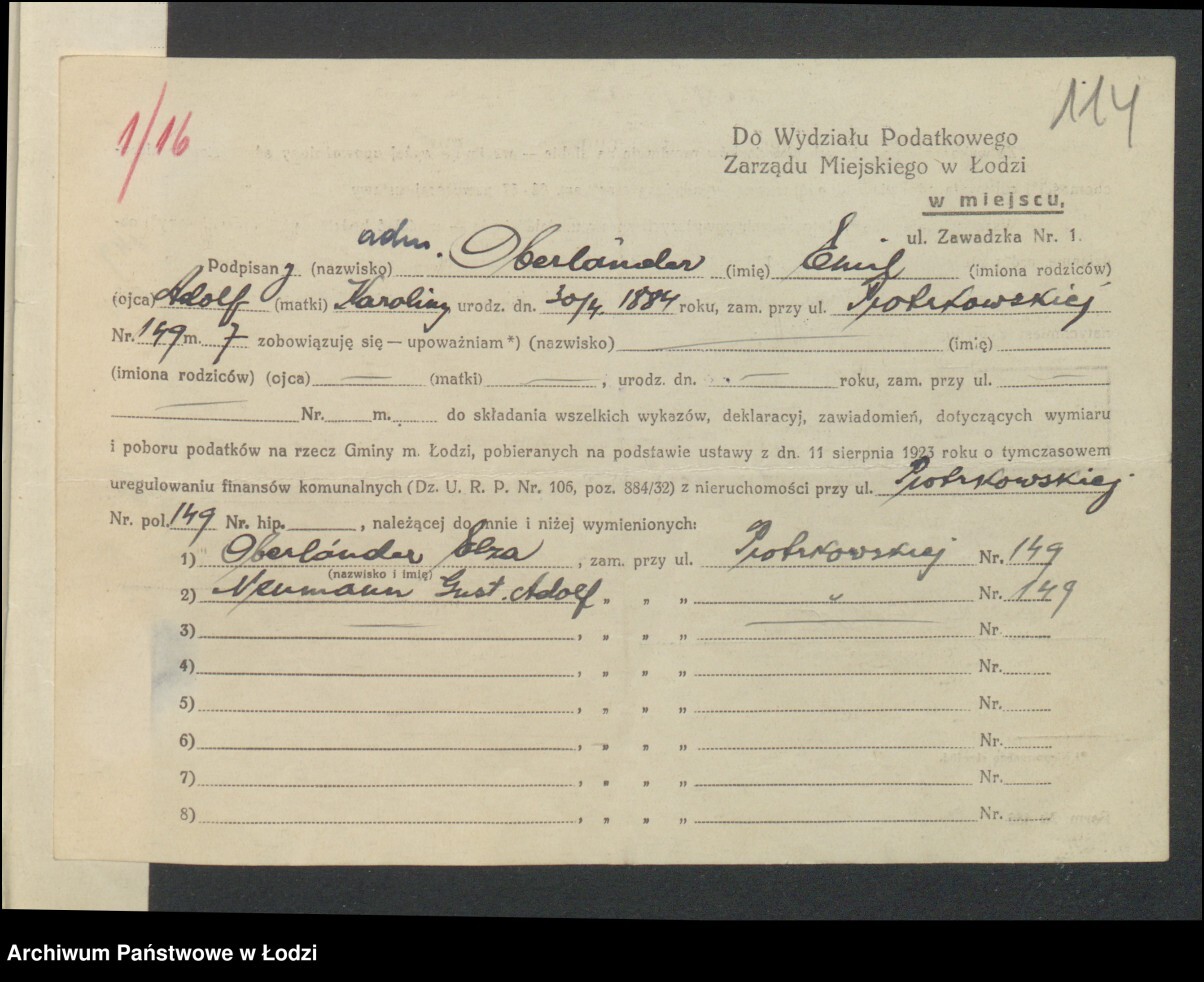 1/16
114
Do Wydziału Podatkowego
Zarządu Miejskiego w Łodzi
w miejscu,
ul. Zawadzka Nr. 1.
adm.
Podpisany (nazwisko) Oberländer (imię) Emil (imiona rodziców)
(ojca) Adolf (matki) Karoliny urodz. dn. 30/4. 1884 roku, zam. przy ul. Piotrkowskiej
Nr. 149 m. 7 zobowiązuję się — upoważniam *) (nazwisko) (imię)
(imiona rodziców) (ojca) — (matki) — , urodz. dn. — roku, zam. przy ul. —
— Nr. m. do składania wszelkich wykazów, deklaracyj, zawiadomień, dotyczących wymiaru
i poboru podatków na rzecz Gminy m. Łodzi, pobieranych na podstawie ustawy z dn. 11 sierpnia 1923 roku o tymczasowem
uregulowaniu finansów komunalnych (Dz. U. R. P. Nr. 106, poz. 884/32) z nieruchomości przy ul. Piotrkowskiej
Nr. pol. 149 Nr. hip. , należącej do mnie i niżej wymienionych:
1) Oberländer Elza , zam. przy ul. Piotrkowskiej Nr. 149
(nazwisko i imię)
2) Neumann Gust. Adolf „ „ „ „ Nr. 149
3) — , „ „ „ — Nr.
4) , „ „ „ Nr.
5) , „ „ „ Nr.
6) , „ „ „ Nr.
7) , „ „ „ Nr.
8) , „ „ „ Nr.
Archiwum Państwowe w Łodzi